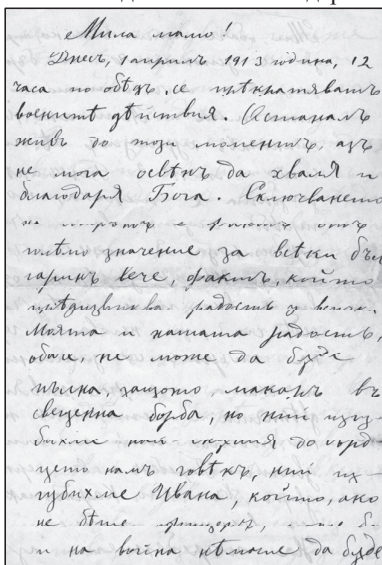 Мила мамо!
Днесъ, 1 априлъ 1913 година, 12
часа по обѣдъ, се прѣкратяватъ
военнитѣ дѣйствия. Останалъ
живъ до този моментъ, азъ
не мога освѣнъ да хваля и
благодаря Бога. Сключването
на
значение за всѣки бъл
гаринъ вече, фактъ, който
прѣдизвиква радость у всички.
Моята и нашата радость,
обаче, не може да бѫде
пълна, защото макаръ въ
свещенна борба, но ний изгу-
бихме най- до сърд-
цето намъ човѣкъ, ний из-
губихме Ивана, който, ако
не бѣше
и на война нѣмаше да бѫде